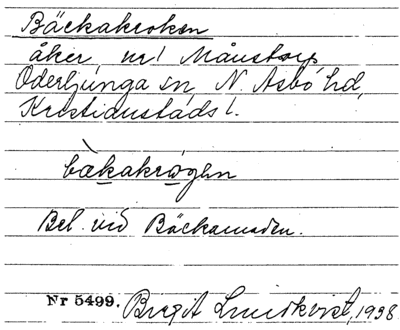 Bäckakroken
åker, nr 1 Månstorp
Oderljunga sn, N. Åsbo hd,
Kristianstads l.
bàkakrogən
Bel. vid Bäckamaden.
Nr 5499. Birgit Lundkvist, 1938